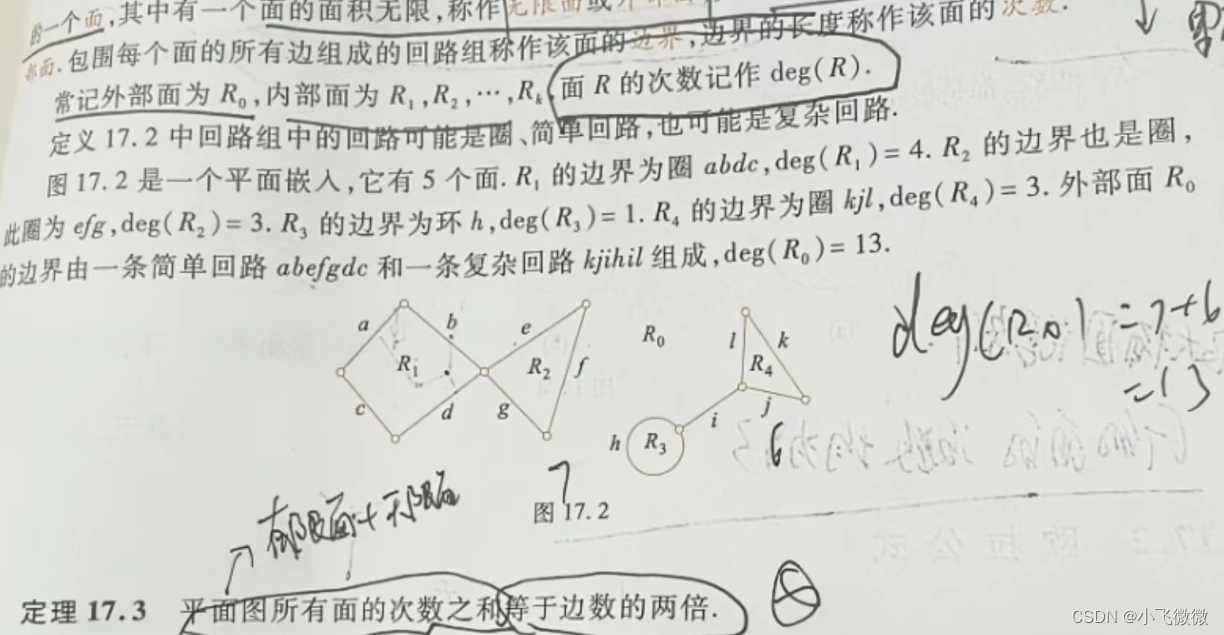 的一个面,其中有一个面的面积无限,称作无限面或外部面
部面.包围每个面的所有边组成的回路组称作该面的边界,边界的长度称作该面的次数.
常记外部面为 R₀,内部面为 R₁,R₂,⋯,Rₖ,面 R 的次数记作 deg(R).
定义 17.2 中回路组中的回路可能是圈、简单回路,也可能是复杂回路.
图 17.2 是一个平面嵌入,它有 5 个面. R₁ 的边界为圈 abdc,deg(R₁)= 4. R₂ 的边界也是圈,
此圈为 efg,deg(R₂)= 3. R₃ 的边界为环 h,deg(R₃)= 1. R₄ 的边界为圈 kjl,deg(R₄)= 3. 外部面 R₀
的边界由一条简单回路 abefgdc 和一条复杂回路 kjihil 组成,deg(R₀)= 13.
deg(R₀)=7+6
=13
a b e f R₀ l k
R₁ R₂ R₄
c d g i j
h R₃
7 6
图 17.2
有限面+无限面
定理 17.3 平面图所有面的次数之和等于边数的两倍.
17.2 欧拉公式
CSDN @小飞微微